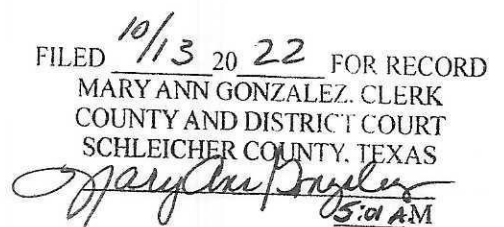 FILED 10/13 20 22 FOR RECORD
MARY ANN GONZALEZ, CLERK
COUNTY AND DISTRICT COURT
SCHLEICHER COUNTY, TEXAS
Mary Ann Gonzalez
5:01 AM